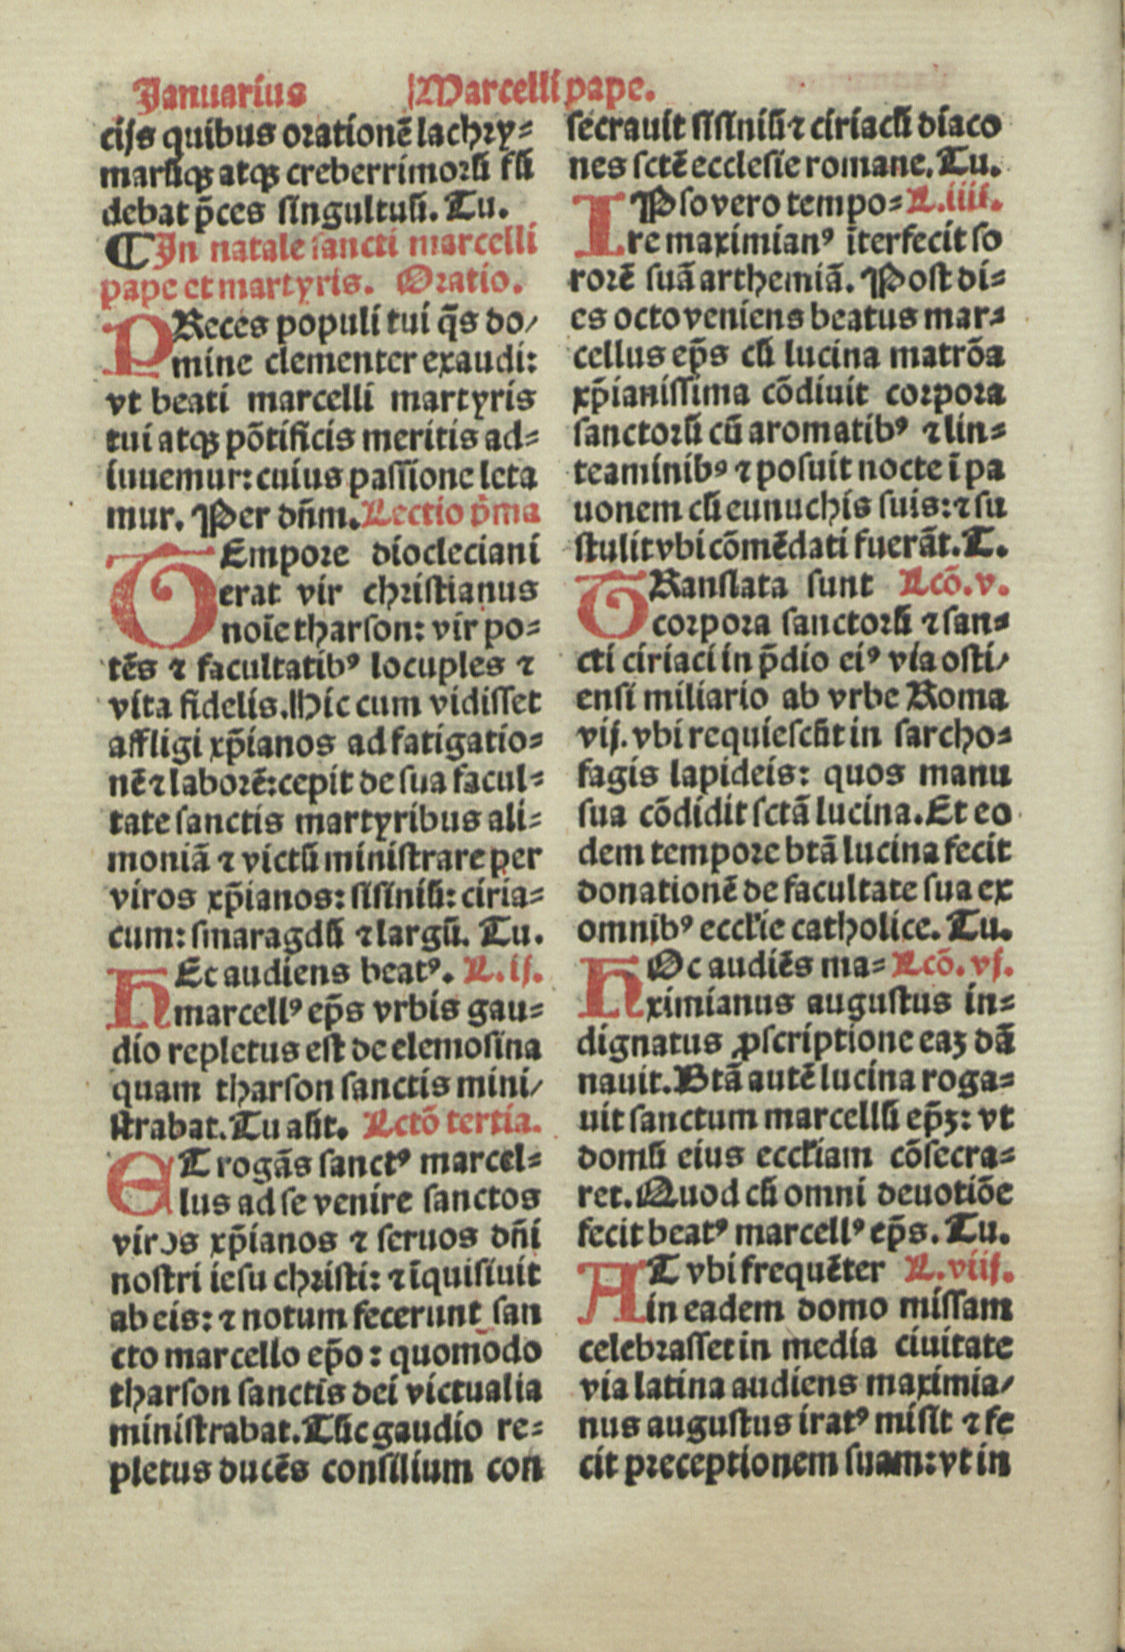 Januarius Marcelli pape.
cijs quibus orationē lachry⸗
marūqꝫ atqꝫ creberrimorū fū
debat p̄ces singultuū. Tu.
¶ In natale sancti marcelli
pape et martyris. Oratio.
PReces populi tui q̄s do/
mine clementer exaudi:
vt beati marcelli martyris
tui atqꝫ pōtificis meritis ad⸗
iuuemur: cuius passione leta
mur. Per dn̄m. Lectio p̄ma
TEmpore diocleciani
erat vir christianus
noīe tharson: vir po⸗
tēs ⁊ facultatibꝰ locuples ⁊
vita fidelis. Hic cum vidisset
affligi xp̄ianos ad fatigatio⸗
nē ⁊ laborē: cepit de sua facul⸗
tate sanctis martyribus ali⸗
moniā ⁊ victū ministrare per
viros xp̄ianos: sisiniū: ciria⸗
cum: smaragdū ⁊ largū. Tu.
HEc audiens beatꝰ. L. ij.
marcellꝰ ep̄s vrbis gau⸗
dio repletus est de elemosina
quam tharson sanctis mini/
strabat. Tu aūt. Lctō tertia.
ET rogās sanctꝰ marcel⸗
lus ad se venire sanctos
viros xp̄ianos ⁊ seruos dn̄i
nostri iesu christi: ⁊ īquisiuit
ab eis: ⁊ notum fecerunt san
cto marcello ep̄o: quomodo
tharson sanctis dei victualia
ministrabat. Tūc gaudio re⸗
pletus ducēs consilium con
secrauit sisiniū ⁊ ciriacū diaco
nes sctē ecclesie romane. Tu.
IPso vero tempo⸗ L. iiij.
re maximianꝰ īterfecit so
rorē suā arthemiā. Post di⸗
es octo veniens beatus mar⸗
cellus ep̄s cū lucina matrōa
xp̄ianissima cōdiuit corpora
sanctorū cū aromatibꝰ ⁊ lin⸗
teaminibꝰ ⁊ posuit nocte ī pa
uonem cū eunuchis suis: ⁊ su
stulit vbi cōmēdati fuerāt. T.
TRanslata sunt Lcō. v.
corpora sanctorū ⁊ san⸗
cti ciriaci in p̄dio eiꝰ via osti/
ensi miliario ab vrbe Roma
vij. vbi requiescūt in sarcho⸗
fagis lapideis: quos manu
sua cōdidit sctā lucina. Et eo
dem tempore btā lucina fecit
donationē de facultate sua ex
omnibꝰ eccl̄ie catholice. Tu.
HOc audiēs ma⸗ Lcō. vj.
ximianus augustus in⸗
dignatus ꝓscriptione eaꝫ dā
nauit. Btā autē lucina roga⸗
uit sanctum marcellū ep̄ꝫ: vt
domū eius eccl̄iam cōsecra⸗
ret. Quod cū omni deuotiōe
fecit beatꝰ marcellꝰ ep̄s. Tu.
AT vbi frequēter L. viij.
in eadem domo missam
celebrasset in media ciuitate
via latina audiens maximia/
nus augustus iratꝰ misit ⁊ fe
cit preceptionem suam: vt in